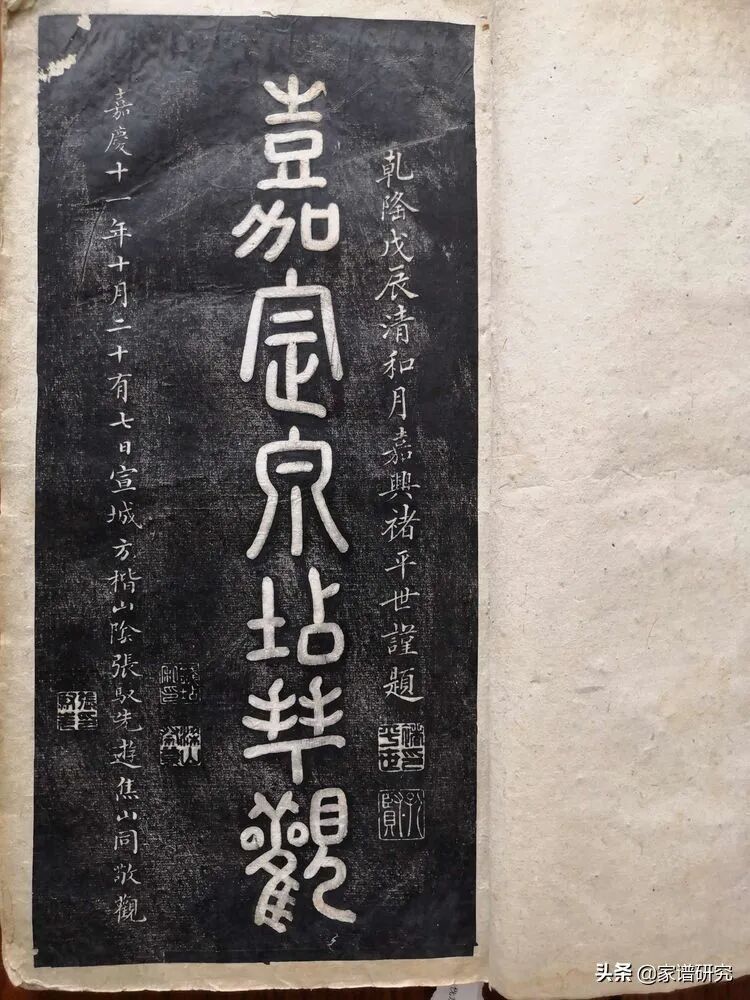 乾隆戊辰清和月嘉興褚平世謹題
褚印平世
嘉定泉坫拜觀
嘉慶十一年十月二十有七日宣城方楷山陰張馭先遊焦山同敬觀
头条 @家谱研究